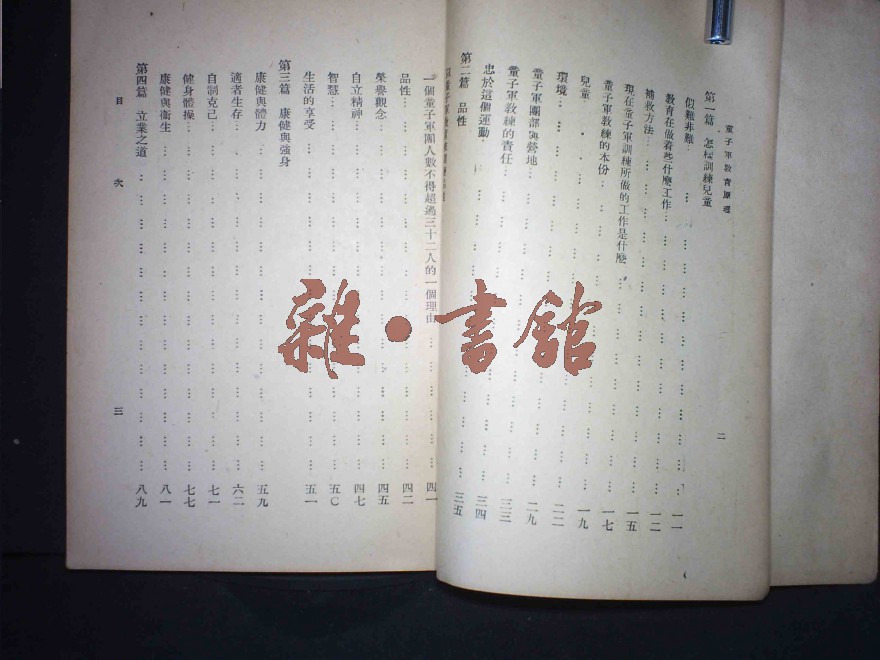 童子軍教育原理
二
第一篇 怎樣訓練兒童
似難非難 一一
教育在做着些什麼工作 一二
補救方法 一五
現在童子軍訓練所做的工作是什麼 一七
童子軍教練的本份 一九
兒童 二二
環境 二九
童子軍團部與營地 三三
童子軍教練的責任 三四
忠於這個運動 三五
第二篇 品性
一個童子軍團人數不得超過三十二人的一個理由 四一
品性 四二
榮譽觀念 四五
自立精神 四七
智慧 五〇
生活的享受 五一
第三篇 康健與強身
康健與體力 五九
適者生存 六二
自制克己 七一
健身體操 七七
康健與衛生 八一
第四篇 立業之道 八九
目次
三
雜·書館